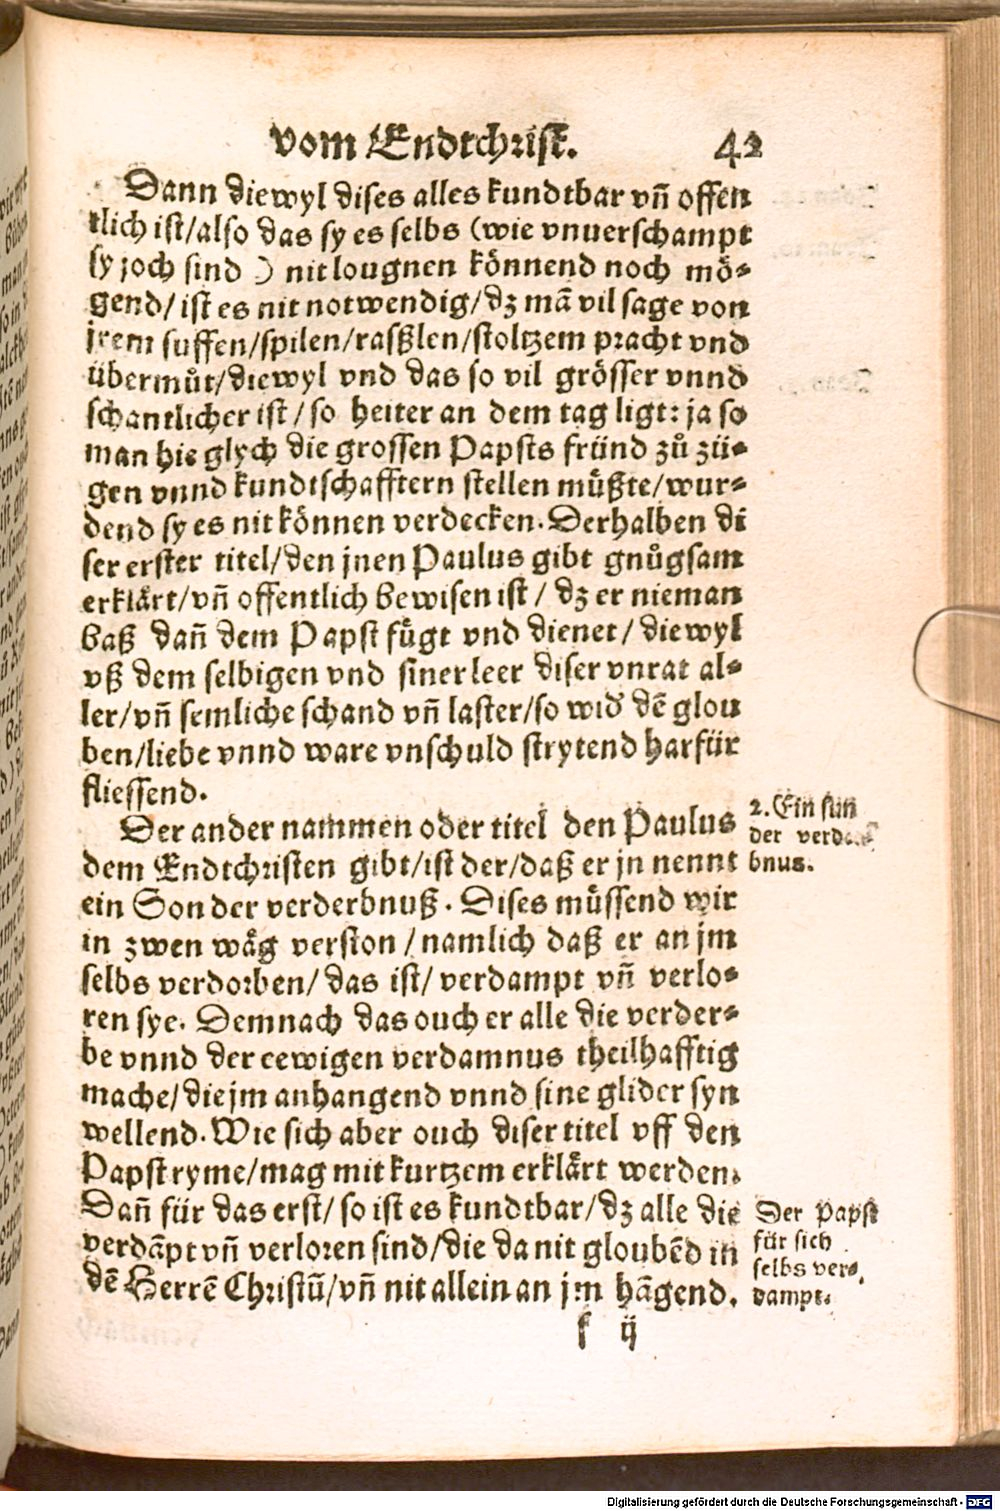 vom Endtchrist. 42
Dann diewyl dises alles kundtbar vñ offen
tlich ist/also das sy es selbs (wie vnuerschampt
sy joch sind ) nit lougnen könnend noch mö⸗
gend/ ist es nit notwendig/dz mā vil sage von
jrem suffen/spilen/rasßlen/stoltzem pracht vnd
übermůt/diewyl vnd das so vil grösser vnnd
schantlicher ist/ so heiter an dem tag ligt: ja so
man hie glych die grossen Papsts fründ zů zü⸗
gen vnnd kundtschafftern stellen müßte/wur⸗
dend sy es nit können verdecken. Derhalben di
ser erster titel/den jnen Paulus gibt gnůgsam
erklärt/vñ offentlich bewisen ist / dz er nieman
baß dañ dem Papst fůgt vnd dienet/ diewyl
vß dem selbigen vnd siner leer diser vnrat al⸗
ler/vñ semliche schand vñ laster/so wid' dē glou
ben/liebe vnnd ware vnschuld strytend harfür
fliessend.
Der ander nammen oder titel den Paulus
dem Endtchristen gibt/ist der/daß er jn nennt
ein Son der verderbnuß. Dises müssend wir
in zwen wäg verston / namlich daß er an jm
selbs verdorben/ das ist/ verdampt vñ verlo⸗
ren sye. Demnach das ouch er alle die verder⸗
be vnnd der eewigen verdamnus theilhafftig
mache/die jm anhangend vnnd sine glider syn
wellend. Wie sich aber ouch diser titel vff den
Papst ryme/mag mit kurtzem erklärt werden.
Dañ für das erst/ so ist es kundtbar/dz alle die
verdāpt vñ verloren sind/die da nit gloubēd in
dē Herrē Christū/vñ nit allein an jm hāgend.
2. Ein sun
der
bnus.
Der Papst
für sich
selbs ver⸗
dampt.
k ij
Digitalisierung gefördert durch die Deutsche Forschungsgemeinschaft - DFG